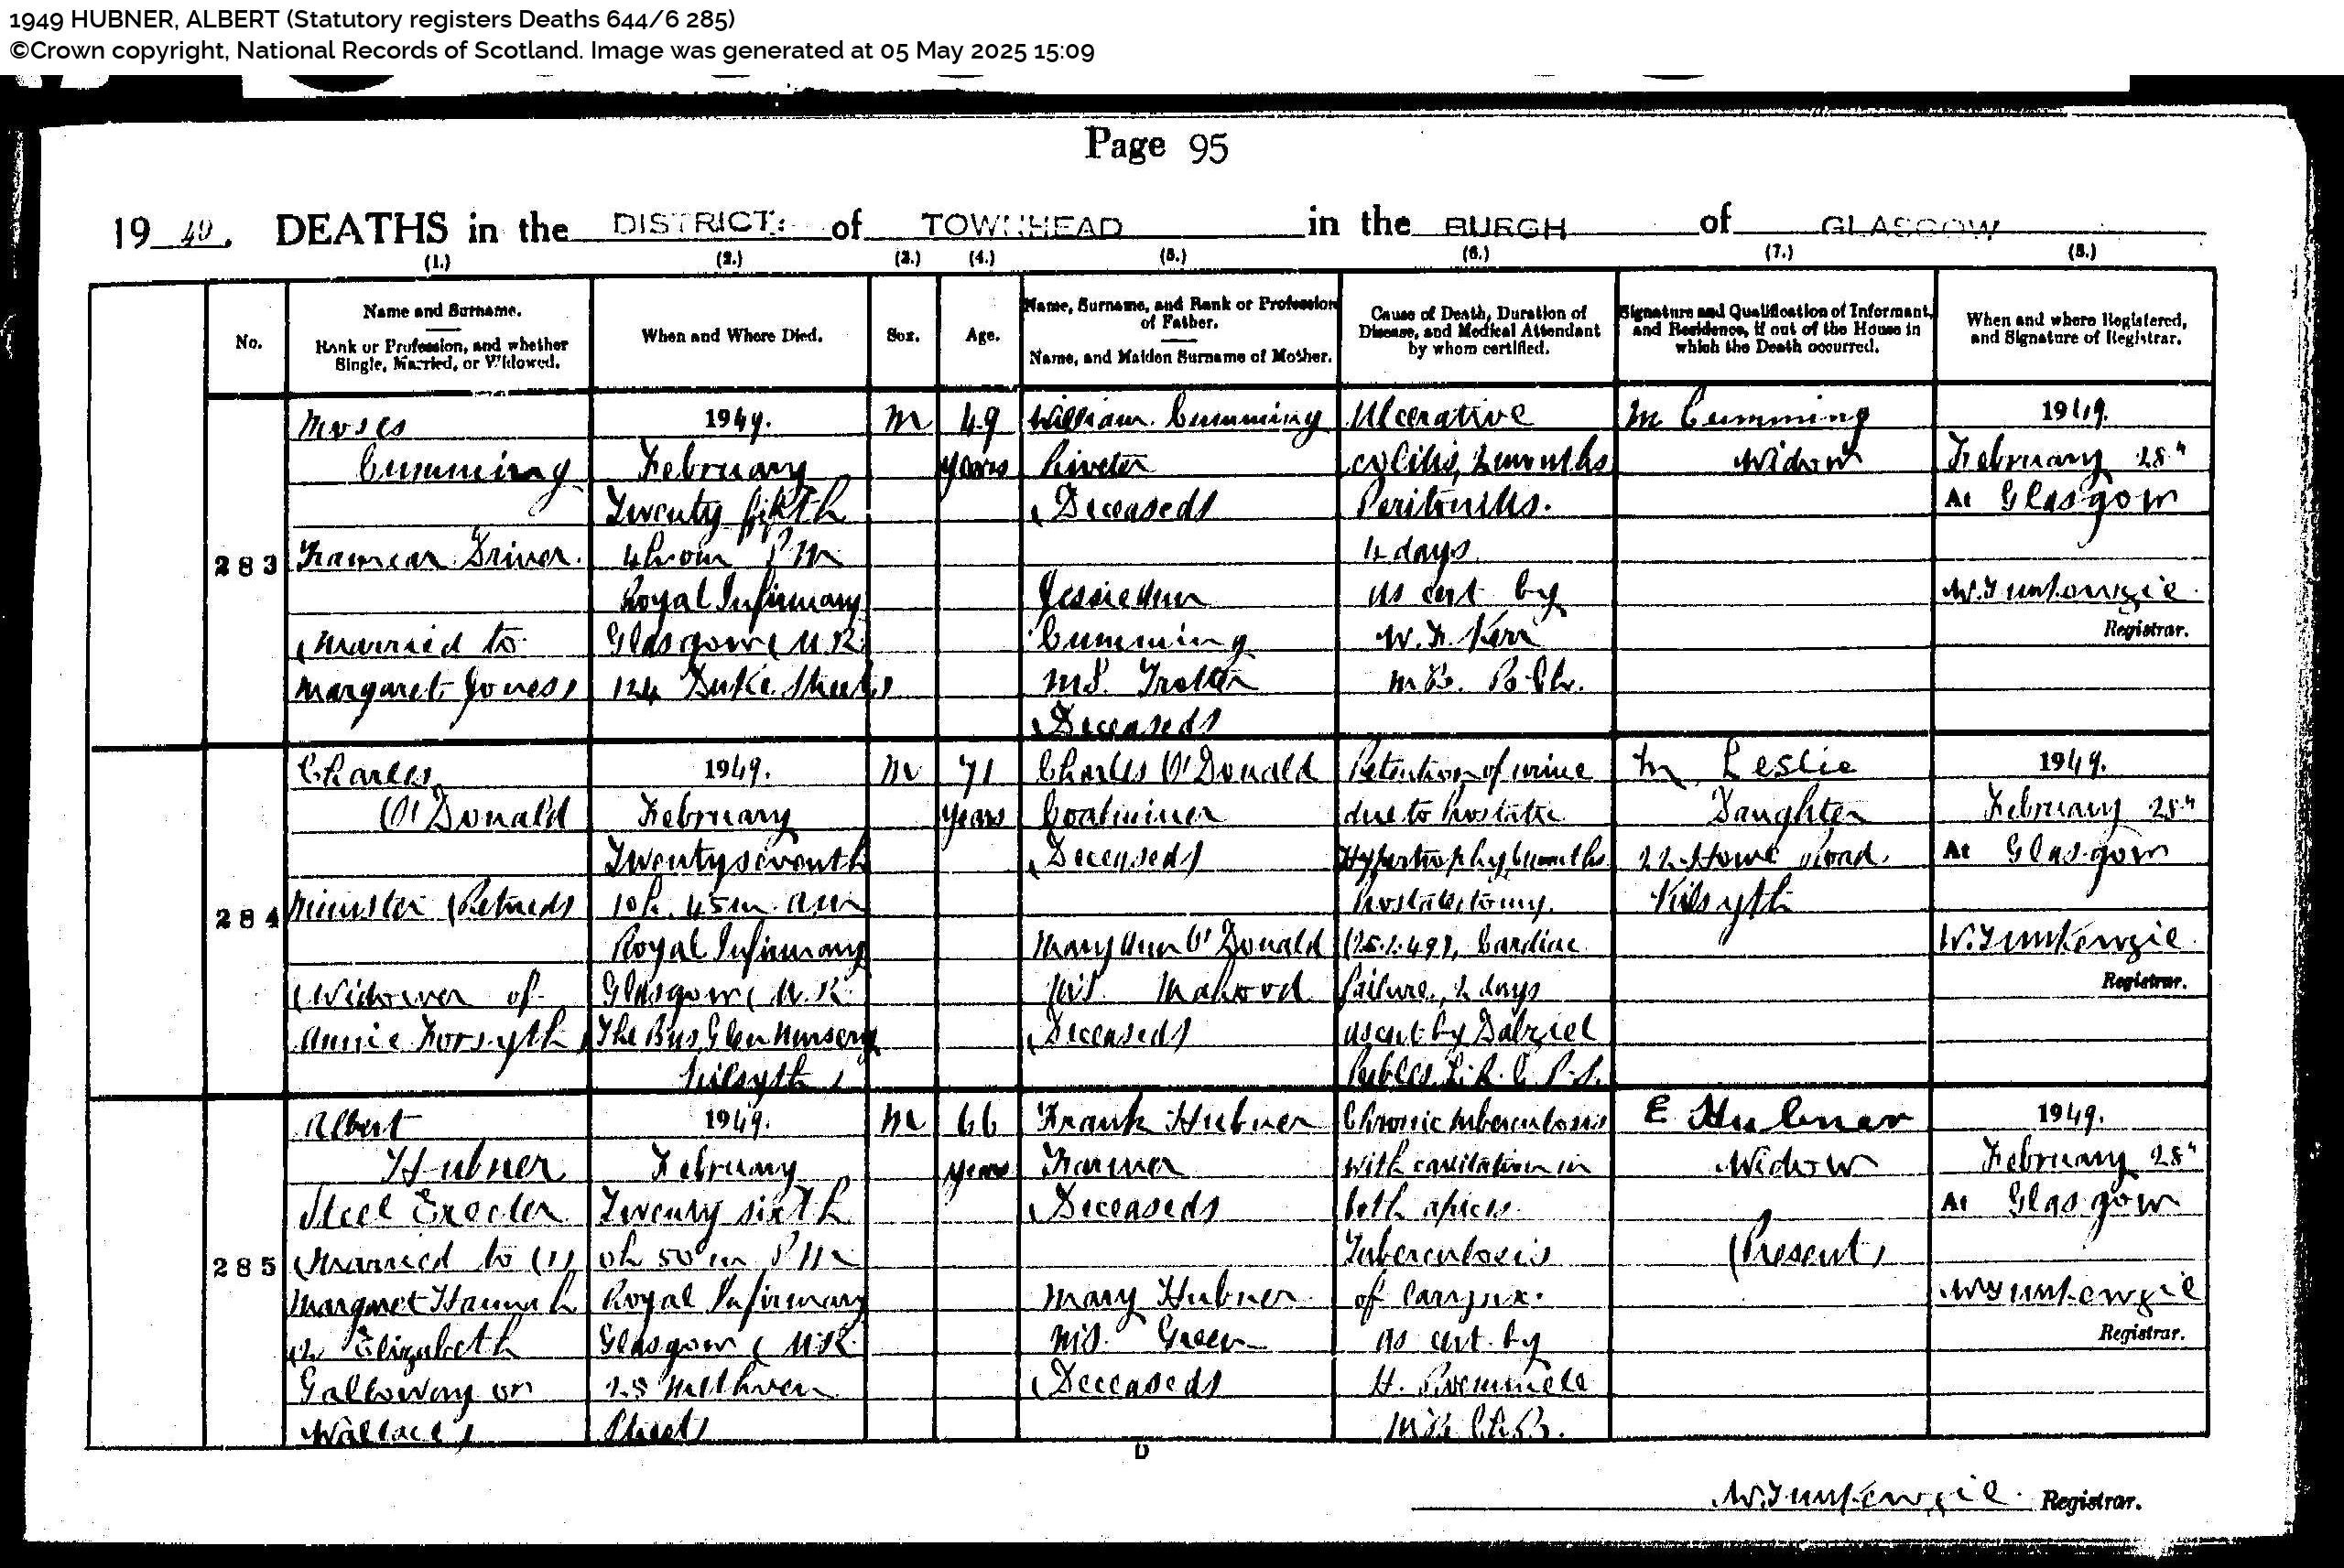 1949 HUBNER, ALBERT (Statutory registers Deaths 644/6 285)
©Crown copyright, National Records of Scotland. Image was generated at 05 May 2025 15:09
Page 95
1949. DEATHS in the DISTRICT of TOWNHEAD in the BURGH of GLASGOW
(1.) (2.) (3.) (4.) (5.) (6.) (7.) (8.)
No.
Name and Surname.
Rank or Profession, and whether
Single, Married, or Widowed.
When and Where Died.
Sex.
Age.
Name, Surname, and Rank or Profession
of Father.
Name, and Maiden Surname of Mother.
Cause of Death, Duration of
Disease, and Medical Attendant
by whom certified.
Signature and Qualification of Informant,
and Residence, if out of the House in
which the Death occurred.
When and where Registered,
and Signature of Registrar.
283
Moses
Cumming
Tramcar Driver.
(Married to
Margaret Jones)
1949.
February
Twenty fifth
4h 0m P M
Royal Infirmary
Glasgow (U.R.
124 Duke Street)
M
49
years
William Cumming
Riveter
(Deceased)
Jessie Ann
Cumming
M.S. Trotter
(Deceased)
Ulcerative
colitis, 2 months
Peritonitis.
4 days
as cert by
W. F. Kerr
M.B. B.Ch.
M Cumming
Widow
1949.
February 28"
At Glasgow
Registrar.
284
Charles
O'Donald
Minister (Retired)
(Widower of
Annie Forsyth)
1949.
February
Twenty seventh
10h. 45m. A M
Royal Infirmary
Glasgow (U.R.
The Glen Nursery
Kilsyth)
M
71
years
Charles O'Donald
Coalminer
(Deceased)
Mary Ann O'Donald
M.S.
(Deceased)
Retention of urine
due to Prostatic
Hypertrophy, 6 months
Prostatectomy.
Cardiac
failure, 2 days
as cert by Gabriel
Peebles L.R.C.P.S.
M Leslie
Daughter
22 Howe Road
Kilsyth
1949.
February 28"
At Glasgow
Registrar.
285
Albert
Hubner
Steel Erector
(Married to (1)
Margaret Hannah
(2) Elizabeth
Galloway or
Wallace)
1949.
February
Twenty sixth
0h 50m P M
Royal Infirmary
Glasgow (U.R.
28 Methven
Street)
M
66
years
Frank Hubner
Farmer
(Deceased)
Mary Hubner
M.S. Green
(Deceased)
Chronic tuberculosis
with cavitation in
both apices.
Tuberculosis
of larynx.
as cert by
H.
M.B. Ch.B.
E Hubner
Widow
(Present)
1949.
February 28"
At Glasgow
Registrar.
D
Registrar.